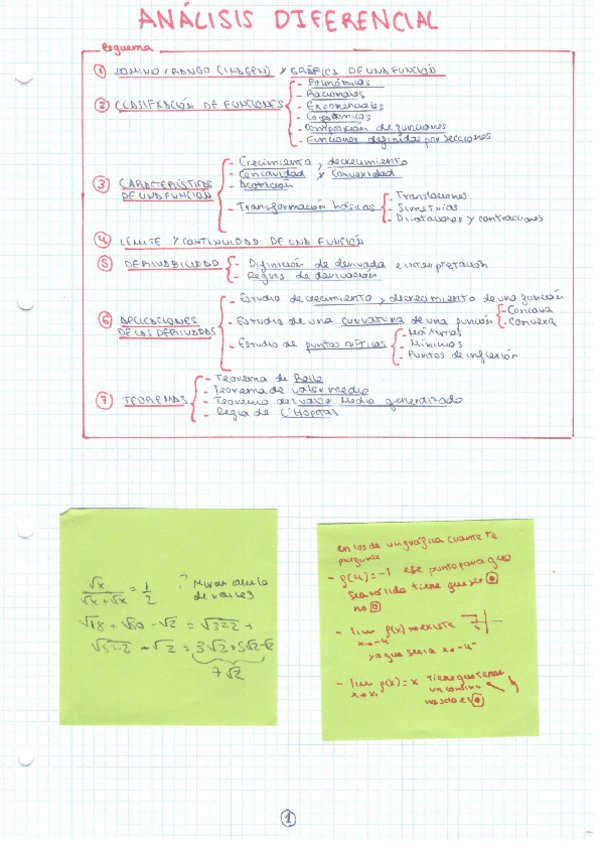 ANÁLISIS DIFERENCIAL
Esquema
① DOMINIO, RANGO (IMAGEN) Y GRÁFICA DE UNA FUNCIÓN
② CLASIFICACIÓN DE FUNCIONES
- Polinómicas
- Racionales
- Exponenciales
- Logarítmicas
- Composición de funciones
- Funciones definidas por secciones
③ CARACTERÍSTICAS DE UNA FUNCIÓN
- Crecimiento y decrecimiento
- Concavidad y Convexidad
- Acotación
- Transformación básicas
- Translaciones
- Simetrías
- Dilataciones y contracciones
④ LÍMITE Y CONTINUIDAD DE UNA FUNCIÓN
⑤ DERIVABILIDAD
- Definición de derivada e interpretación
- Reglas de derivación
⑥ APLICACIONES DE LAS DERIVADAS
- Estudio de crecimiento y decrecimiento de una función
- Estudio de una curvatura de una función
- Cóncava
- Convexa
- Estudio de puntos críticos
- Máximos
- Mínimos
- Puntos de inflexión
⑦ TEOREMAS
- Teorema de Rolle
- Teorema de valor medio
- Teorema del valor Medio generalizado
- Regla de L'Hopital
√x / √x+√x = 1/2
de raíces
√18 + √50 - √2 = √3²·2 +
√5²·2 - √2 = 3√2+5√2-√2
7√2
en los de un gráfica cuando te
pregunte
- f(4)=-1 ese punto para que
sea válido tiene que ser
no
- lim f(x) no existe
x→-4
ya que sería x→-4⁻
- lim f(x) = x tiene que tener
x→x₁ un continuo
no solo es
①